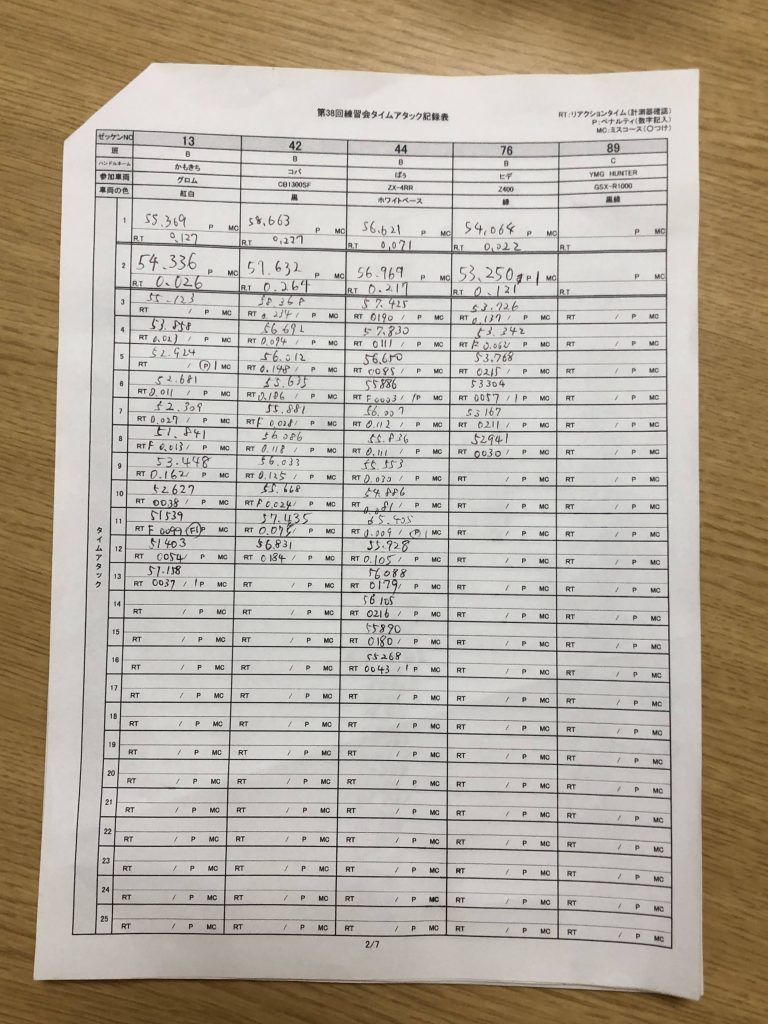 第38回練習会タイムアタック記録表
RT:リアクションタイム(計測器確認)
P:ペナルティ(数字記入)
MC:ミスコース(○つけ)
ゼッケンNO 13 42 44 76 89
班 B B B B C
ハンドルネーム かもきち コバ ばぅ ヒデ YMG HUNTER
参加車両 グロム CB1300SF ZX-4RR Z400 GSX-R1000
車両の色 紅白 黒 ホワイトベース 緑 黒緑
タイムアタック
1 55.369 P MC 58.663 P MC 56.621 P MC 54.064 P MC P MC
R.T 0.127 R.T 0.227 R.T 0.071 R.T 0.022 R.T
2 54.336 P MC 57.632 P MC 56.969 P MC 53.250 P 1 MC P MC
R.T 0.026 R.T 0.264 R.T 0.217 R.T 0.121 R.T
3 55.123 58.368 57.425 53.726
RT / P MC RT 0.234 / P MC RT 0190 / P MC RT 0.137 / P MC RT / P MC
4 53.848 56.692 57.830 53.342
RT 0.023 / P MC RT 0.094 / P MC RT 0111 / P MC RT F 0.062 / P MC RT / P MC
5 52.924 56.012 56.650 53.768
RT / P 1 MC RT 0.148 / P MC RT 0085 / P MC RT 0215 / P MC RT / P MC
6 52.681 55.635 55886 53304
RT 0.011 / P MC RT 0.186 / P MC RT F 0003 / 1P MC RT 0057 / 1P MC RT / P MC
7 52.309 55.881 56.007 53167
RT 0.027 / P MC RT F 0.028 / P MC RT 0.112 / P MC RT 0211 / P MC RT / P MC
8 51.841 56.086 55.836 52941
RT F 0.013 / P MC RT 0.118 / P MC RT 0.111 / P MC RT 0030 / P MC RT / P MC
9 53.448 56.033 55.553
RT 0.162 / P MC RT 0.125 / P MC RT 0.030 / P MC RT / P MC RT / P MC
10 52627 55.668 54.886
RT 0038 / P MC RT F 0.024 / P MC RT 0.081 / P MC RT / P MC RT / P MC
11 51539 57.435 55.405
RT F 0099 P MC RT 0.075 / P MC RT 0.009 / P 1 MC RT / P MC RT / P MC
12 51403 56.831 55.928
RT 0054 / P MC RT 0184 / P MC RT 0.105 / P MC RT / P MC RT / P MC
13 51.158 56088
RT 0037 / 1P MC RT / P MC RT 0179 / P MC RT / P MC RT / P MC
14 56105
RT / P MC RT / P MC RT 0216 / P MC RT / P MC RT / P MC
15 55890
RT / P MC RT / P MC RT 0180 / P MC RT / P MC RT / P MC
16 55268
RT / P MC RT / P MC RT 0043 / 1P MC RT / P MC RT / P MC
17
RT / P MC RT / P MC RT / P MC RT / P MC RT / P MC
18
RT / P MC RT / P MC RT / P MC RT / P MC RT / P MC
19
RT / P MC RT / P MC RT / P MC RT / P MC RT / P MC
20
RT / P MC RT / P MC RT / P MC RT / P MC RT / P MC
21
RT / P MC RT / P MC RT / P MC RT / P MC RT / P MC
22
RT / P MC RT / P MC RT / P MC RT / P MC RT / P MC
23
RT / P MC RT / P MC RT / P MC RT / P MC RT / P MC
24
RT / P MC RT / P MC RT / P MC RT / P MC RT / P MC
25
RT / P MC RT / P MC RT / P MC RT / P MC RT / P MC
2/7